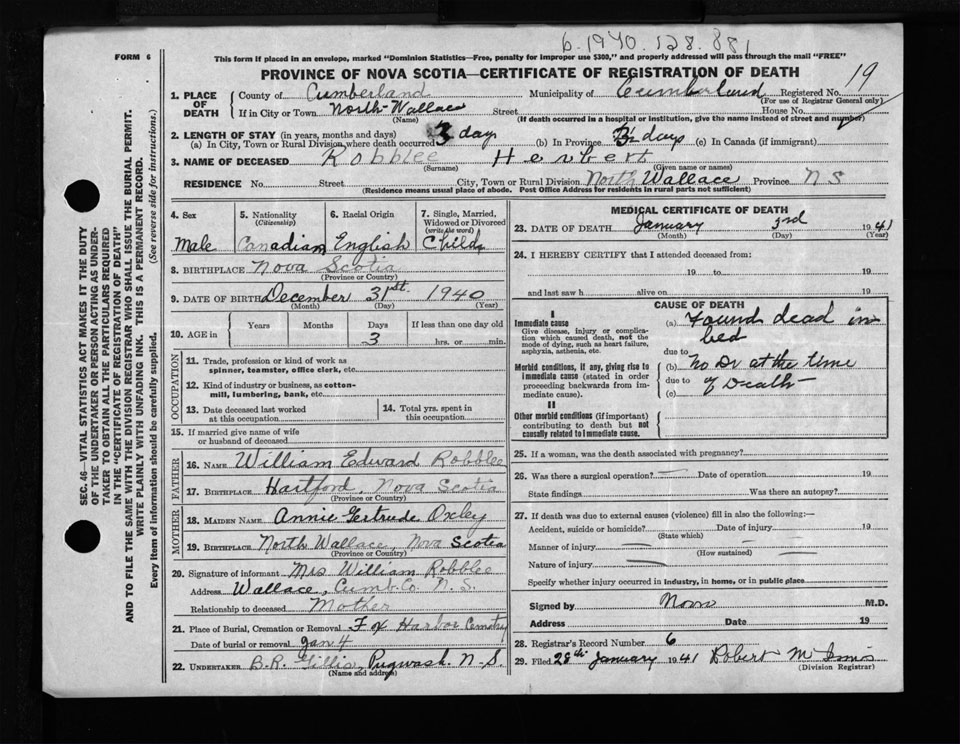 6.1940.128.881
FORM 6
This form if placed in an envelope, marked "Dominion Statistics—Free, penalty for improper use $300," and properly addressed will pass through the mail "FREE"
PROVINCE OF NOVA SCOTIA—CERTIFICATE OF REGISTRATION OF DEATH
19
1. PLACE OF DEATH County of Cumberland Municipality of Cumberland Registered No.
(For use of Registrar General only)
If in City or Town North-Wallace Street House No.
(Name) (If death occurred in a hospital or institution, give the name instead of street and number)
2. LENGTH OF STAY (in years, months and days)
(a) In City, Town or Rural Division where death occurred 3 day (b) In Province 3 days (c) In Canada (if immigrant)
3. NAME OF DECEASED Robblee Herbert
(Surname) (Given name or names)
RESIDENCE No. Street City, Town or Rural Division North Wallace Province N S
(Residence means usual place of abode. Post Office Address for residents in rural parts not sufficient)
4. Sex Male
5. Nationality (Citizenship) Canadian
6. Racial Origin English
7. Single, Married, Widowed or Divorced (write the word) Child
8. BIRTHPLACE Nova Scotia
(Province or Country)
9. DATE OF BIRTH December 31st. 1940
(Month) (Day) (Year)
10. AGE in Years Months Days If less than one day old
3 hrs. or min.
OCCUPATION
11. Trade, profession or kind of work as spinner, teamster, office clerk, etc.
12. Kind of industry or business, as cotton-mill, lumbering, bank, etc.
13. Date deceased last worked at this occupation
14. Total yrs. spent in this occupation
15. If married give name of wife or husband of deceased
FATHER
16. NAME William Edward Robblee
17. BIRTHPLACE Hartford, Nova Scotia
(Province or Country)
MOTHER
18. MAIDEN NAME Annie Gertrude Oxley
19. BIRTHPLACE North Wallace, Nova Scotia
(Province or Country)
20. Signature of informant Mrs William Robblee
Address Wallace, Cumb. Co. N. S.
Relationship to deceased Mother
21. Place of Burial, Cremation or Removal Fox Harbor Cemetry
Date of burial or removal Jan 4
22. UNDERTAKER B.R. Gillis, Pugwash. N-S.
(Name and address)
MEDICAL CERTIFICATE OF DEATH
23. DATE OF DEATH January 3rd 1941
(Month) (Day) (Year)
24. I HEREBY CERTIFY that I attended deceased from:
19 to 19
and last saw h alive on 19
CAUSE OF DEATH
I
Immediate cause
Give disease, injury or complication which caused death, not the mode of dying, such as heart failure, asphyxia, asthenia, etc.
(a) Found dead in bed
due to
Morbid conditions, if any, giving rise to immediate cause (stated in order proceeding backwards from immediate cause).
(b) No Dr at the time
due to of Death
(c)
II
Other morbid conditions (if important) contributing to death but not causally related to immediate cause.
25. If a woman, was the death associated with pregnancy?
26. Was there a surgical operation? Date of operation 19
State findings Was there an autopsy?
27. If death was due to external causes (violence) fill in also the following:—
Accident, suicide or homicide? Date of injury 19
(State which)
Manner of injury
(How sustained)
Nature of injury
Specify whether injury occurred in industry, in home, or in public place
Signed by M.D.
Address Date 19
28. Registrar's Record Number 6
29. Filed 28th January 1941 Robert
(Division Registrar)
SEC. 46—VITAL STATISTICS ACT MAKES IT THE DUTY
OF THE UNDERTAKER OR PERSON ACTING AS UNDER-
TAKER TO OBTAIN ALL THE PARTICULARS REQUIRED
IN THE "CERTIFICATE OF REGISTRATION OF DEATH"
AND TO FILE THE SAME WITH THE DIVISION REGISTRAR WHO SHALL ISSUE THE BURIAL PERMIT.
WRITE PLAINLY WITH UNFADING INK. THIS IS A PERMANENT RECORD.
Every item of information should be carefully supplied. (See reverse side for instructions.)